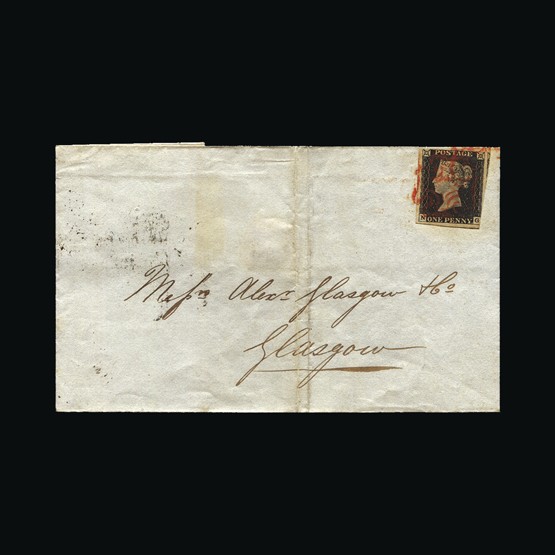 POSTAGE
ONE PENNY
Messrs Alexr Glasgow & Co
Glasgow